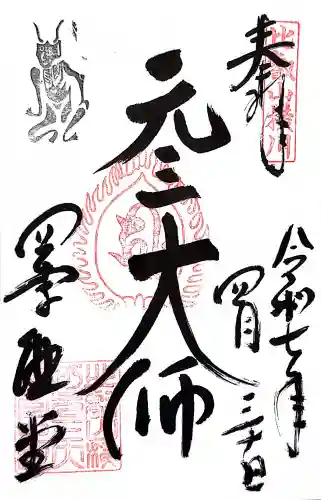 奉拝
比叡山横川
令和七年
四月
三十日
元三大師
四季講堂